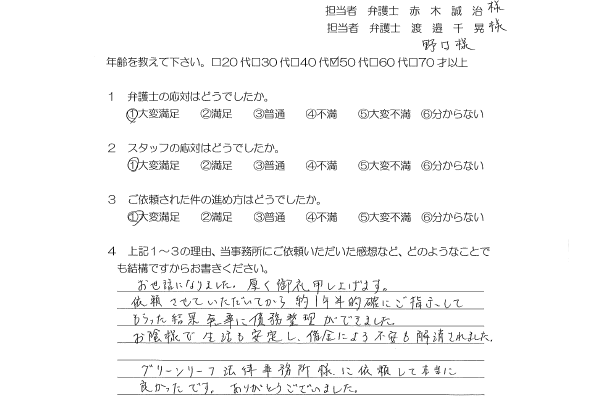 担当者 弁護士 赤木 誠治 様
担当者 弁護士 渡邉 千晃 様
野口様
年齢を教えて下さい。□20代□30代□40代☑50代□60代□70才以上
1 弁護士の応対はどうでしたか。
①大変満足 ②満足 ③普通 ④不満 ⑤大変不満 ⑥分からない
2 スタッフの応対はどうでしたか。
①大変満足 ②満足 ③普通 ④不満 ⑤大変不満 ⑥分からない
3 ご依頼された件の進め方はどうでしたか。
①大変満足 ②満足 ③普通 ④不満 ⑤大変不満 ⑥分からない
4 上記1~3の理由、当事務所にご依頼いただいた感想など、どのようなことで
も結構ですからお書きください。
お世話になりました。厚く御礼申し上げます。
依頼させていただいてから約1年半的確にご指示して
もらった結果無事に債務整理ができました。
お陰様で生活も安定し、借金による不安も解消されました。
グリーンリーフ法律事務所様に依頼して本当に
良かったです。ありがとうございました。